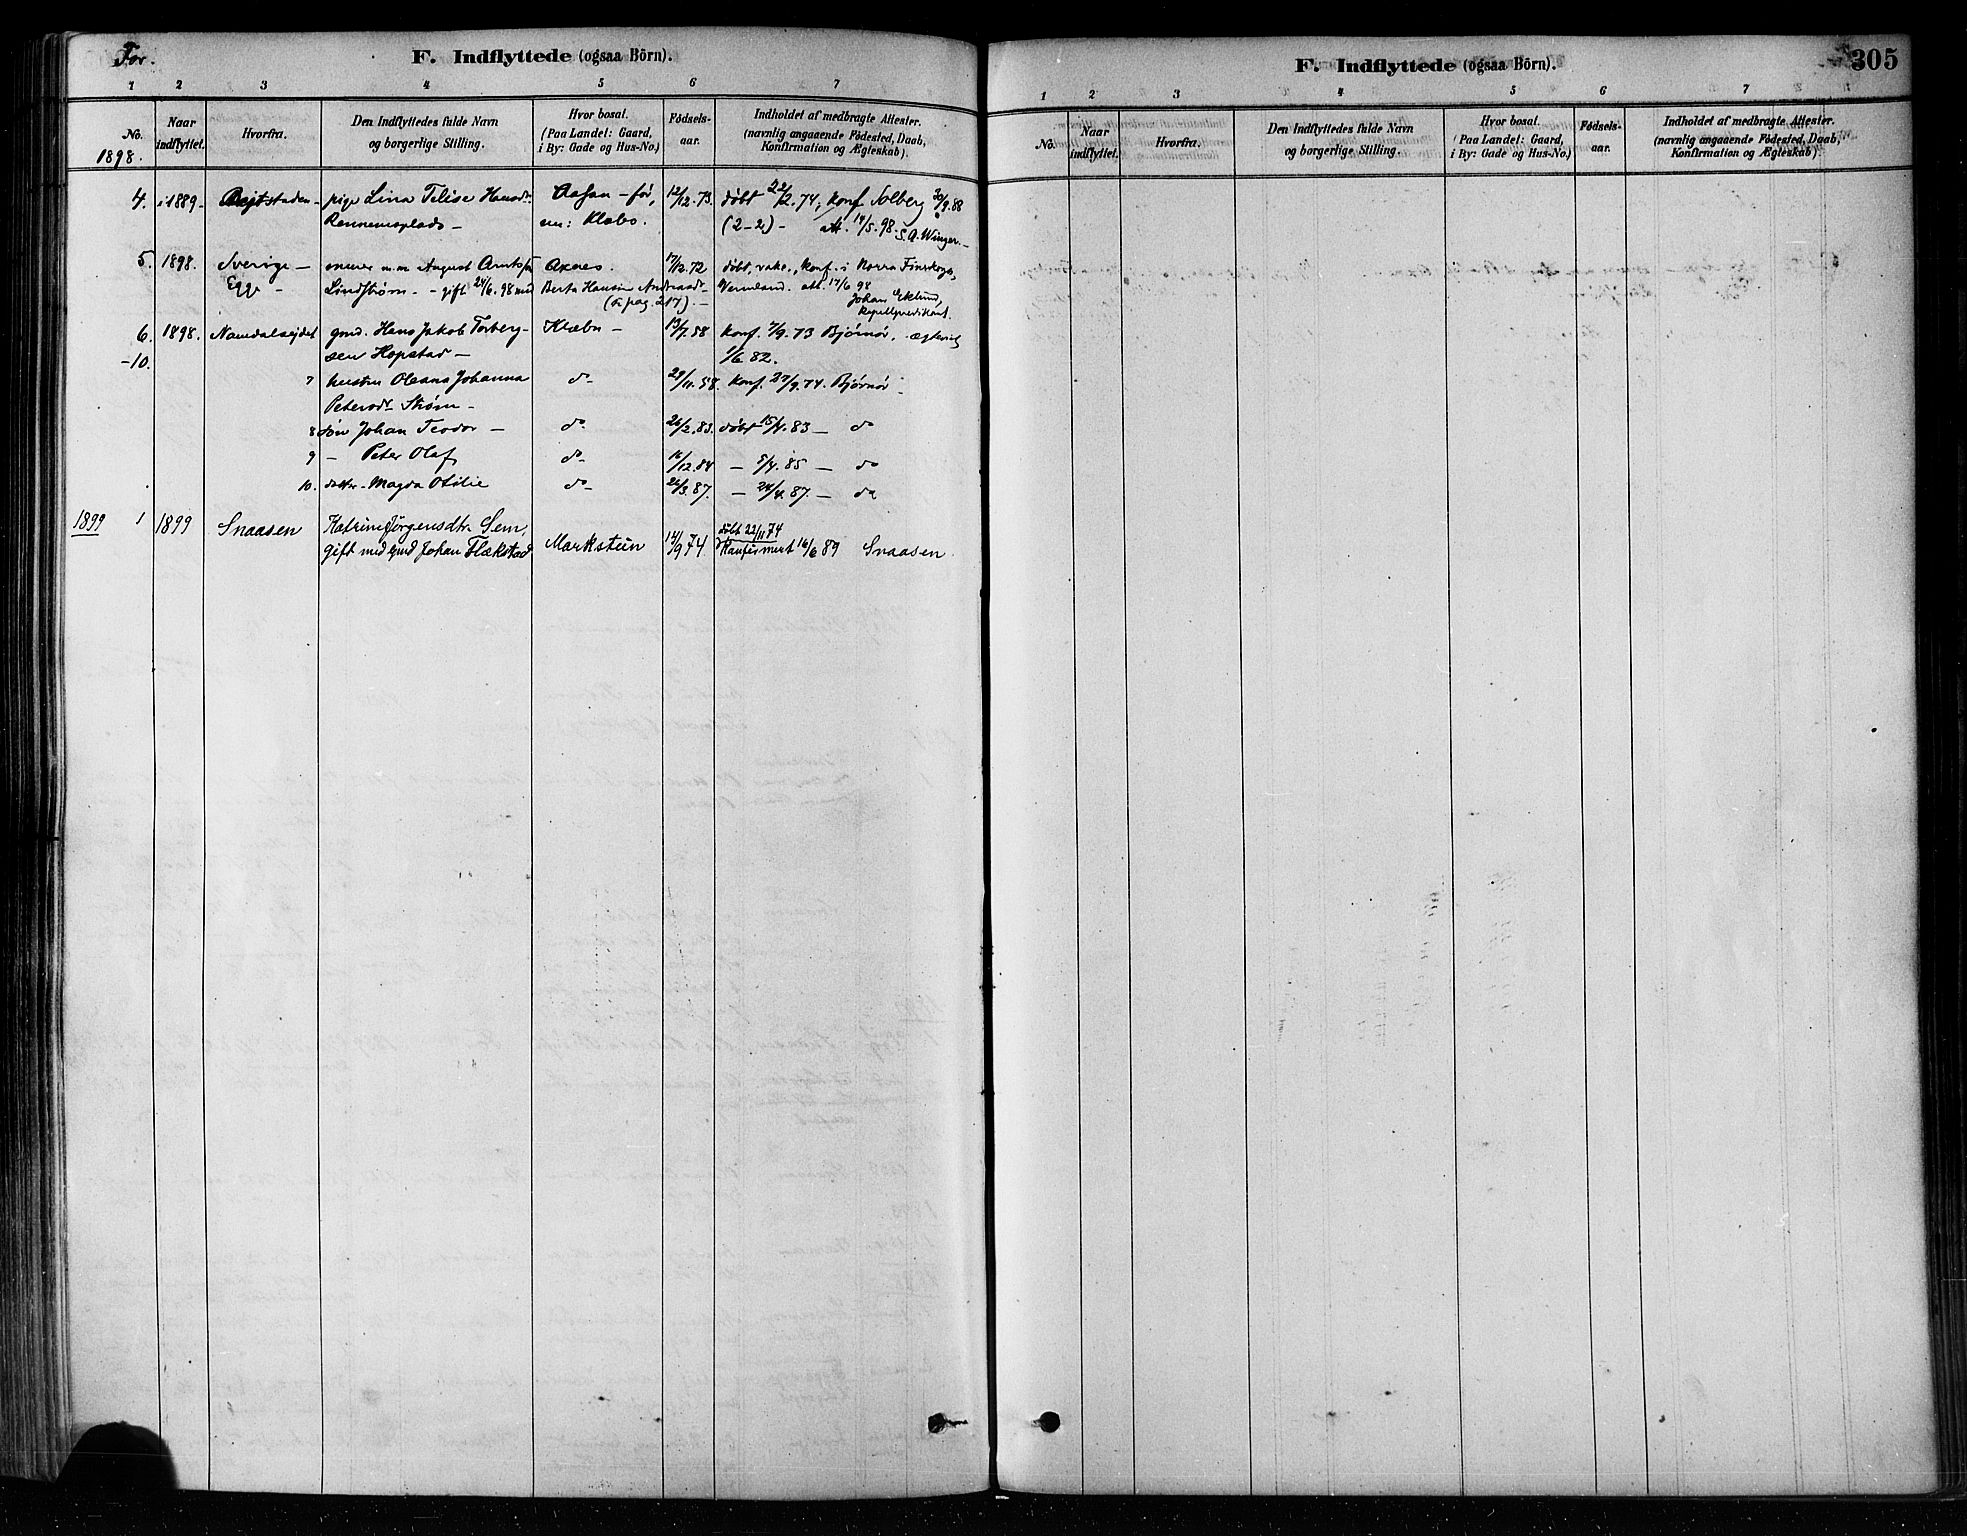 For.
F. Indflyttede (ogsaa Börn).
1 2 3 4 5 6 7
No. Naar indflyttet. Hvorfra. Den Indflyttedes fulde Navn og borgerlige Stilling. Hvor bosat. (Paa Landet: Gaard, i By: Gade og Hus-No.) Fødsels-aar. Indholdet af medbragte Attester. (navnlig angaaende Fødested, Daab, Konfirmation og Ægteskab).
1898.
4. i 1889- Bejtstaden- pige Lina Hansdr. Aasan - før, 12/12.73. døbt 22/2.74, konf. Solberg 30/9.88
Rennemsplads - Klæbo. (2-2) - att. 14/5.98. S.A. Winger.-
5. 1898. Sverige - m.m August Axnes. 17/12.72 døbt, vakc., konf. i Norra Finskoga,
Egge - Lindstrøm. - gift 24/6.98 med Berta Hansine Andreasdr. - Vermland. att. 17/6 98
(se pag. 217). - Johan Eklund,
kapellpredikant.
6. 1898. Namdalseidet gmd. Hans Jakob Torberg- Klæbu - 13/7.58 konf. 7/9.73 Bjørnør.
-10. sen Hopstad - 1/6 82.
7 hustru Oleana Johanna do- 29/11.58. konf. 27/9.74. Bjørnør -
Petersdr. Strøm -
8 søn Johan Teodor - do. 26/2.83. døbt 15/4.83 - do
9 - Peter Olaf do- 16/12.84 - 5/4.85 - do
10. datter - Magda Otilie do- 26/3.87. - 24/4.87. - do
1899 1 1899 Snaasen Katrine Jørgensdtr. Sem, døbt 22/11 74
gift med gmd Johan Flækstad Markstein 14/9 74 Konfirmert 16/6 89 Snaasen.
F. Indflyttede (ogsaa Börn).
305
1 2 3 4 5 6 7
No. Naar indflyttet. Hvorfra. Den Indflyttedes fulde Navn og borgerlige Stilling. Hvor bosat. (Paa Landet: Gaard, i By: Gade og Hus-No.) Fødsels-aar. Indholdet af medbragte Attester. (navnlig angaaende Fødested, Daab, Konfirmation og Ægteskab).